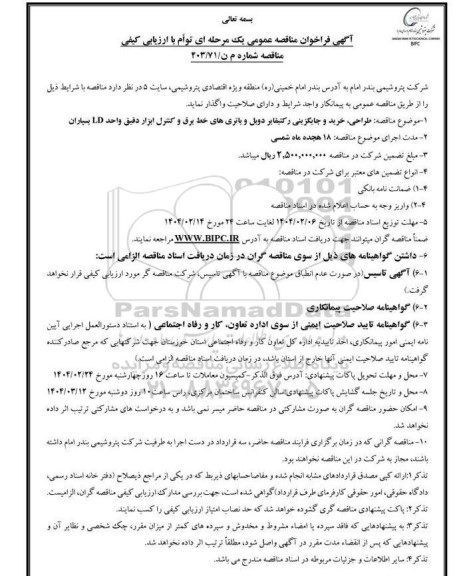 بسمه تعالی
آگهی فراخوان مناقصه عمومی یک مرحله ای توأم با ارزیابی کیفی
مناقصه شماره م ن/۴۰۳/۷۱
BIPC
شرکت پتروشیمی بندر امام به آدرس بندر امام خمینی(ره) منطقه ویژه اقتصادی پتروشیمی، سایت ۵ در نظر دارد مناقصه با شرایط ذیل
را از طریق مناقصه عمومی به پیمانکار واجد شرایط و دارای صلاحیت واگذار نماید.
۱-موضوع مناقصه: طراحی، خرید و جایگزینی رکتیفایر دوبل و باتری های خط برق و کنترل ابزار دقیق واحد LD بسپاران
۲-مدت اجرای موضوع مناقصه: ۱۸ هجده ماه شمسی
۳- مبلغ تضمین شرکت در مناقصه ۲,۵۰۰,۰۰۰,۰۰۰ ریال میباشد.
۴- انواع تضمین های معتبر برای شرکت در مناقصه:
۴-۱) ضمانت نامه بانکی
۴-۲) واریز وجه به حساب اعلام شده در اسناد مناقصه
۵- مهلت توزیع اسناد مناقصه از تاریخ ۱۴۰۴/۰۲/۰۶ لغایت ساعت ۲۴ مورخ ۱۴۰۴/۰۲/۱۴
ضمناً مناقصه گران میتوانند جهت دریافت اسناد مناقصه به آدرس WWW.BIPC.IR مراجعه نمایند.
۶- داشتن گواهینامه های ذیل از سوی مناقصه گران در زمان دریافت اسناد مناقصه الزامی است:
۶-۱) آگهی تاسیس(در صورت عدم انطباق موضوع مناقصه با آگهی تاسیس، شرکت مناقصه گر مورد ارزیابی کیفی قرار نخواهد
گرفت.)
۶-۲) گواهینامه صلاحیت پیمانکاری
۶-۳) گواهینامه تایید صلاحیت ایمنی از سوی اداره تعاون، کار و رفاه اجتماعی ( به استناد دستورالعمل اجرایی آیین
نامه ایمنی امور پیمانکاری، اخذ تاییدیه اداره کل تعاون کار و رفاه اجتماعی استان خوزستان جهت شرکتهایی که مرجع صادرکننده
گواهینامه تایید صلاحیت ایمنی آنها خارج از استان باشد، در زمان دریافت اسناد مناقصه الزامی است.)
۷- محل و مهلت تحویل پاکات پیشنهادی: آدرس فوق الذکر -کمیسیون معاملات تا ساعت ۱۶ روز چهارشنبه مورخ ۱۴۰۴/۰۲/۲۴
۸- محل و تاریخ جلسه گشایش پاکات پیشنهادی:سالن کنفرانس ساختمان مرکزی، راس ساعت ۱۰ روز دوشنبه مورخ ۱۴۰۴/۰۳/۱۲
۹- امکان حضور مناقصه گران به صورت مشارکتی در مناقصه حاضر میسر نمی باشد و به درخواست های مشارکتی ترتیب اثر داده
نخواهد شد.
۱۰- مناقصه گرانی که در زمان برگزاری فرایند مناقصه حاضر، سه قرارداد در دست اجرا به ظرفیت شرکت پتروشیمی بندر امام داشته
باشند، مجاز به شرکت در این مناقصه نخواهند بود.
تذکر۱:ارائه کپی مصدق قراردادهای مشابه انجام شده و مفاصاحسابهای ذیربط که در یکی از مراجع ذیصلاح (دفتر خانه اسناد رسمی،
دادگاه حقوقی، امور حقوقی کارفرمای طرف قرارداد)گواهی شده است، جهت بررسی مدارک ارزیابی کیفی مناقصه گران، الزامیست.
تذکر۲: پاکت پیشنهادی مناقصه گری گشوده خواهد شد که حد نصاب امتیاز ارزیابی کیفی را کسب نمایند.
تذکر۳: به پیشنهادهایی که فاقد سپرده یا امضاء مشروط و مخدوش و سپرده های کمتر از میزان مقرر، چک شخصی و نظایر آن و
پیشنهادهایی که پس از انقضاء مدت مقرر در آگهی واصل شود، مطلقاً ترتیب اثر داده نخواهد شد.
تذکر۴: سایر اطلاعات و جزئیات مربوطه در اسناد مناقصه مندرج می باشد.
ParsNamadData